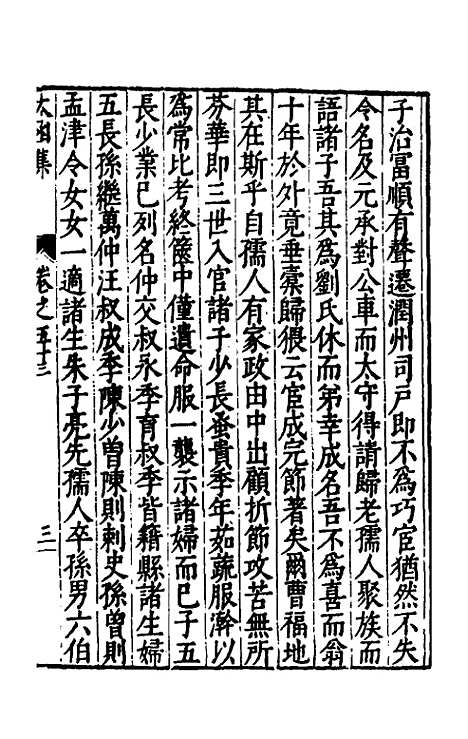 子治富順有聲遷潤州司戸即不爲巧宦猶然不失
令名及元承對公車而太守得請歸老孺人聚族而
語諸子吾其爲劉氏休而弟幸成名吾不爲喜而翁
十年於外竟垂橐歸猥云官成完節著矣爾曹福地
其在斯乎自孺人有家政由中出顧折節攻苦無所
芬華即三世入官諸子少長番貴季年茹蔬服澣以
爲常比考終篋中僅遺命服一襲示諸婦而已子五
長少業已列名仲交叔永季育叔季皆籍縣諸生婦
五長孫繼萬仲汪叔成季陳少曾陳則刺史孫曾則
孟津令女女一適諸生朱子亮先孺人卒孫男六伯
太函集
卷之五十三
三